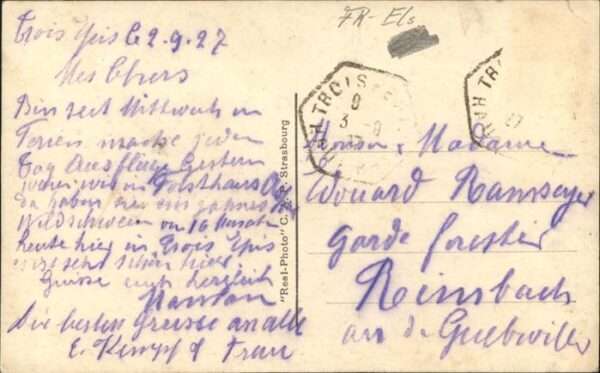 FR-Els
Trois Epis le 2.9.27
Mes Chers
Bin seit Mittwoch in
Ferien mache jeden
Tag Ausflüge Gestern
waren wir in Forsthaus
da haben sie ein zahmes
Wildschwein von 16 Monaten
heute hier in Trois Epis
sehr schön hier.
Grüsse euch herzlich
Die besten Grüsse an alle
E. Kempf & Frau
"Real-Photo" C. A. P. Strasbourg
TROIS
3 - 9
TR
27
Monsieur & Madame
Edouard Ramseyer
Garde forestier
Rimbach
arr. de Guebwiller